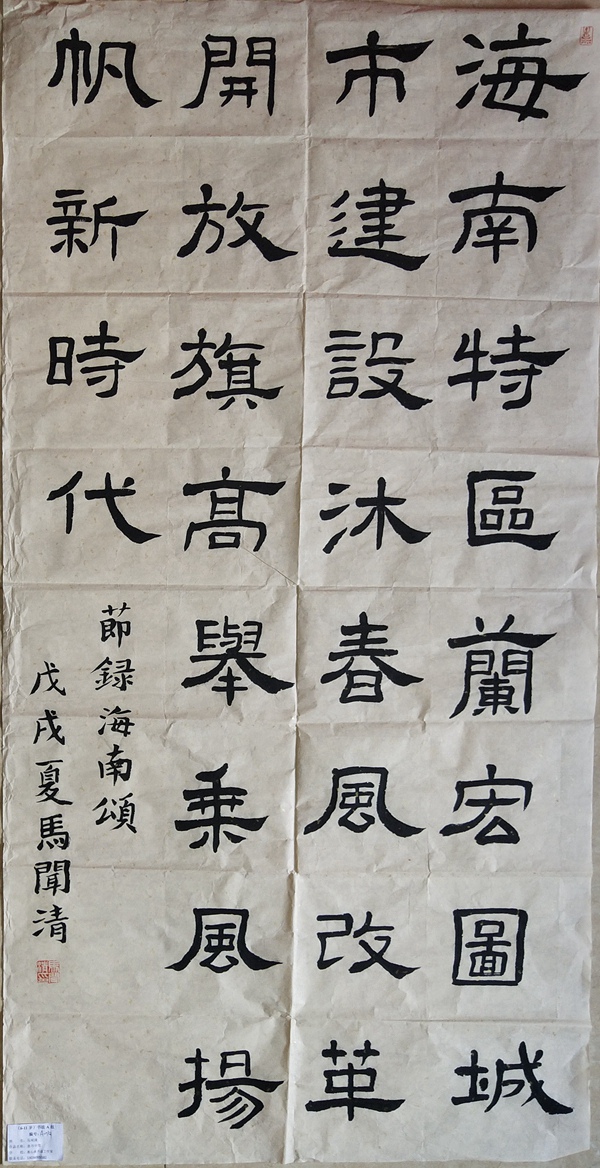 海南特區蘭宏圖城
市建設沐春風改革
開放旗高舉乘風揚
帆新時代
節録海南頌
戊戌夏馬聞清